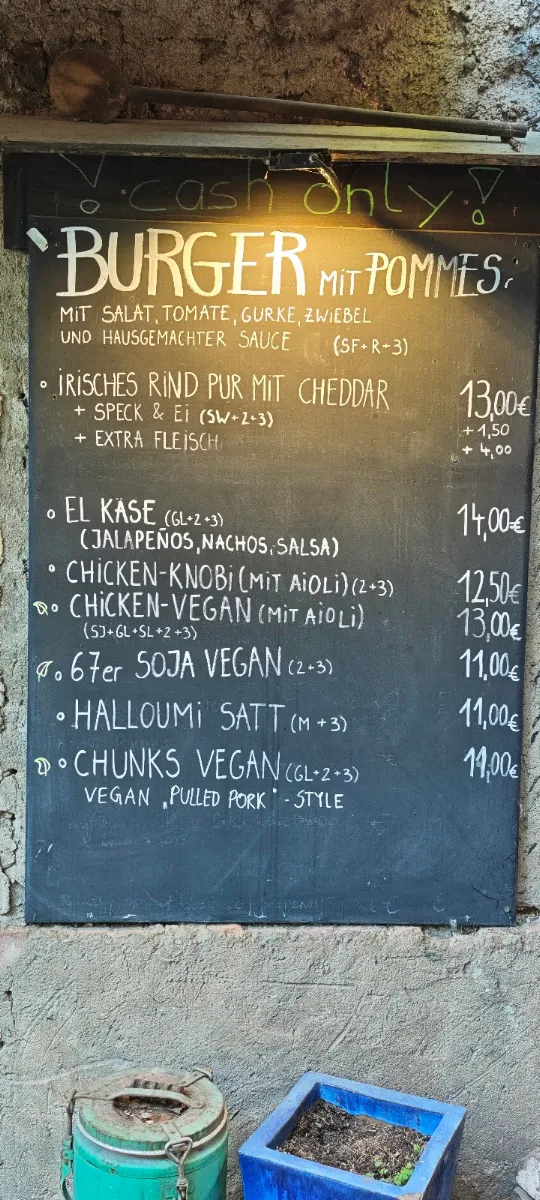 ! cash only!
BURGER MIT POMMES
MIT SALAT, TOMATE, GURKE, ZWIEBEL
UND HAUSGEMACHTER SAUCE (SF+R+3)
IRISCHES RIND PUR MIT CHEDDAR 13,00€
+ SPECK & Ei (SW+2+3) +1,50
+ EXTRA FLEISCH +4,00
EL KÄSE (GL+2+3) 14,00€
(JALAPEÑOS, NACHOS, SALSA)
CHICKEN-KNOBi (MIT AiOLi) (2+3) 12,50€
CHiCKEN-VEGAN (MIT AIOLI) 13,00€
(SJ+GL+SL+2+3)
67er SOJA VEGAN (2+3) 11,00€
HALLOUMi SATT (M+3) 11,00€
CHUNKS VEGAN (GL+2+3) 11,00€
VEGAN „PULLED PORK" - STYLE